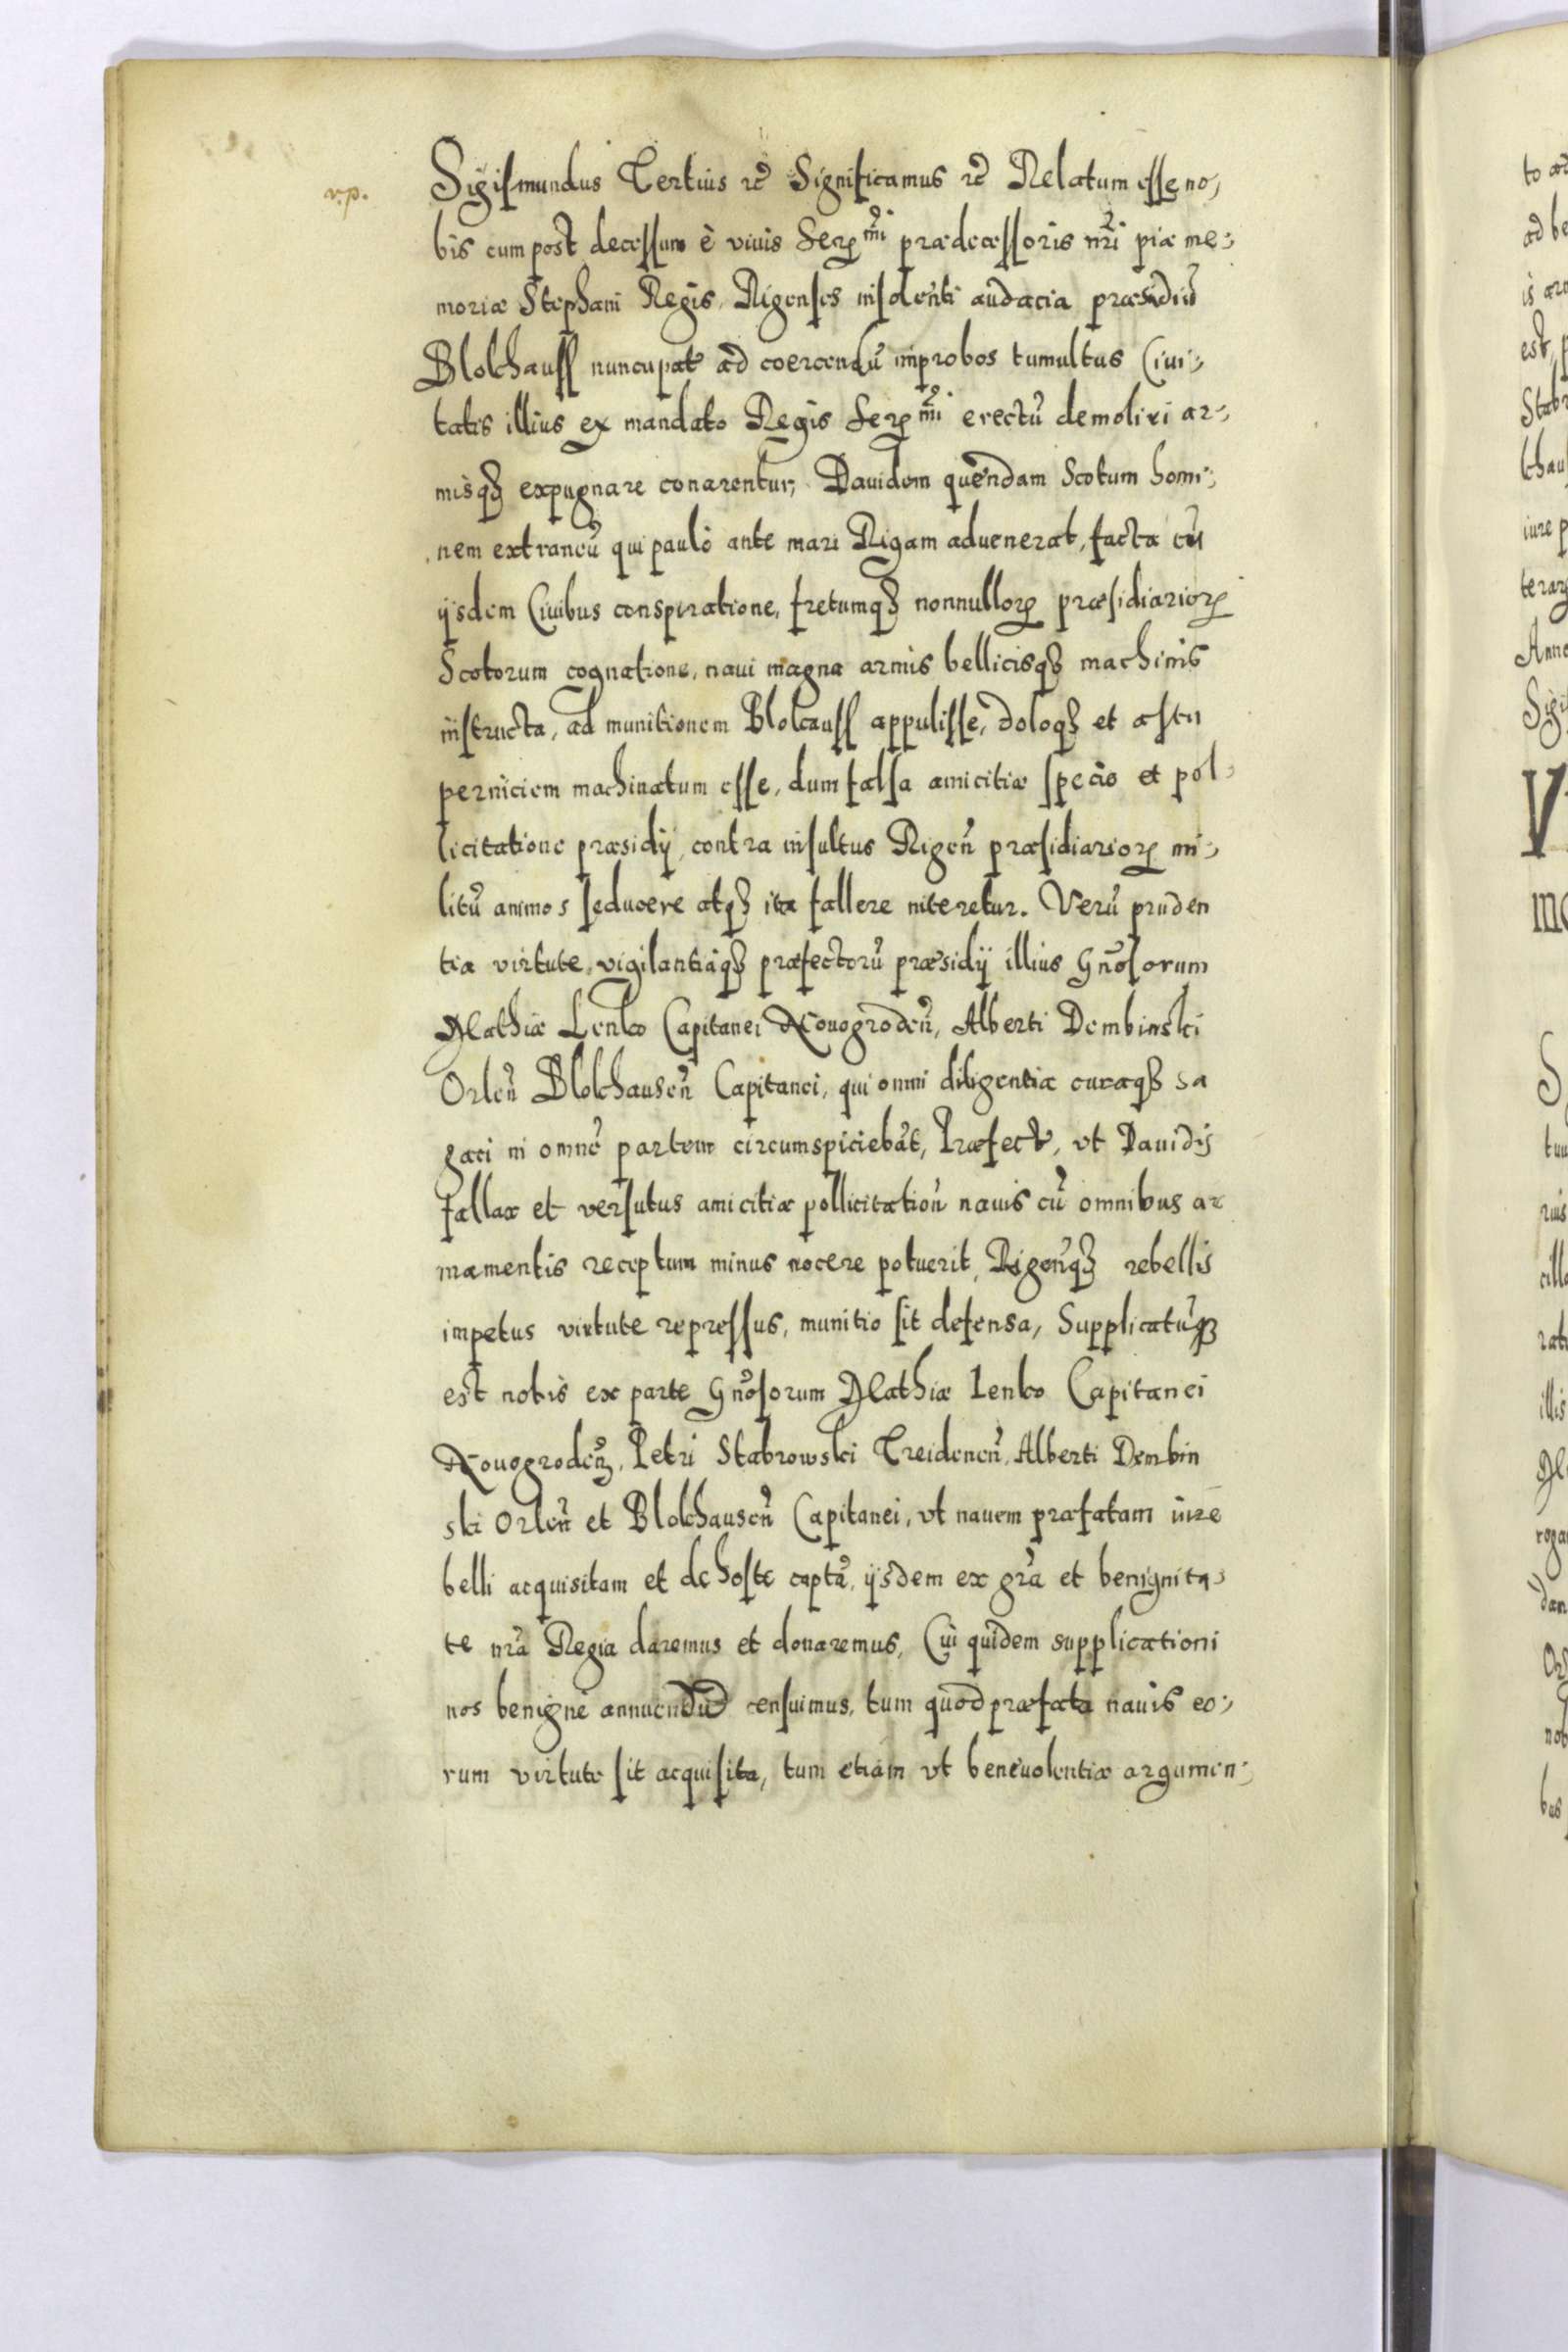 v.p.
Sigismundus Tertius etc Significamus etc Relatum esse no,
bis cum post decessum è viuis Seren mi prædecessoris nri piæ me-
moriæ Stephani Regis, Rigenses insolenti audacia præsidiũ
Blokhauss nuncupat ad coercendũ improbos tumultus Ciui-
tatis illius ex mandato Regis Seren mi erectũ demoliri ar-
misqȝ expugnare conarentur, Dauidem quendam Scotum homi-
nem extraneũ qui paulò ante mari Rigam aduenerat, facta cũ
ijsdem Ciuibus conspiratione, fretumqȝ nonnulloꝝ præsidiarioꝝ
Scotorum cognatione, naui magna armis bellicisqȝ machinis
instructa, ad munitionem Blokauss appulisse, doloqȝ et astu
perniciem machinatum esse, dum falsa amicitiæ specie et pol-
licitatione præsidij, contra insultus Rigeñ præsidiarioꝝ mi-
litũ animos seducere atqȝ ita fallere niteretur. Verũ pruden
tia virtute, vigilantiaqȝ præfectorũ præsidij illius Gnosorum
Mathiæ Lenko Capitanei Nouogrodeñ, Alberti Dembinski
Orleñ Blokhauseñ Capitanei, qui omni diligentia curaqȝ sa
gaci in omnẽ partem circumspiciebãt, Præfect, vt Dauidis
fallax et versutus amicitiæ pollicitatioñ nauis cũ omnibus ar
mamentis receptum minus nocere potuerit, Rigeñqȝ rebellis
impetus virtute repressus, munitio sit defensa, Supplicatũqȝ
est nobis ex parte Gnosorum Mathiæ Lenko Capitanei
Nouogrodeñ, Petri Stabrowski Treideneñ, Alberti Dembin
ski Orleñ et Blokhauseñ Capitanei, vt nauem præfatam iure
belli acquisitam et de hoste captã, ijsdem ex gra et benignita-
te nra Regia daremus et donaremus, Cui quidem supplicationi
nos benigne annuendũ censuimus, tum quod præfata nauis eo-
rum virtute sit acquisita, tum etiam vt beneuolentiæ argumen-